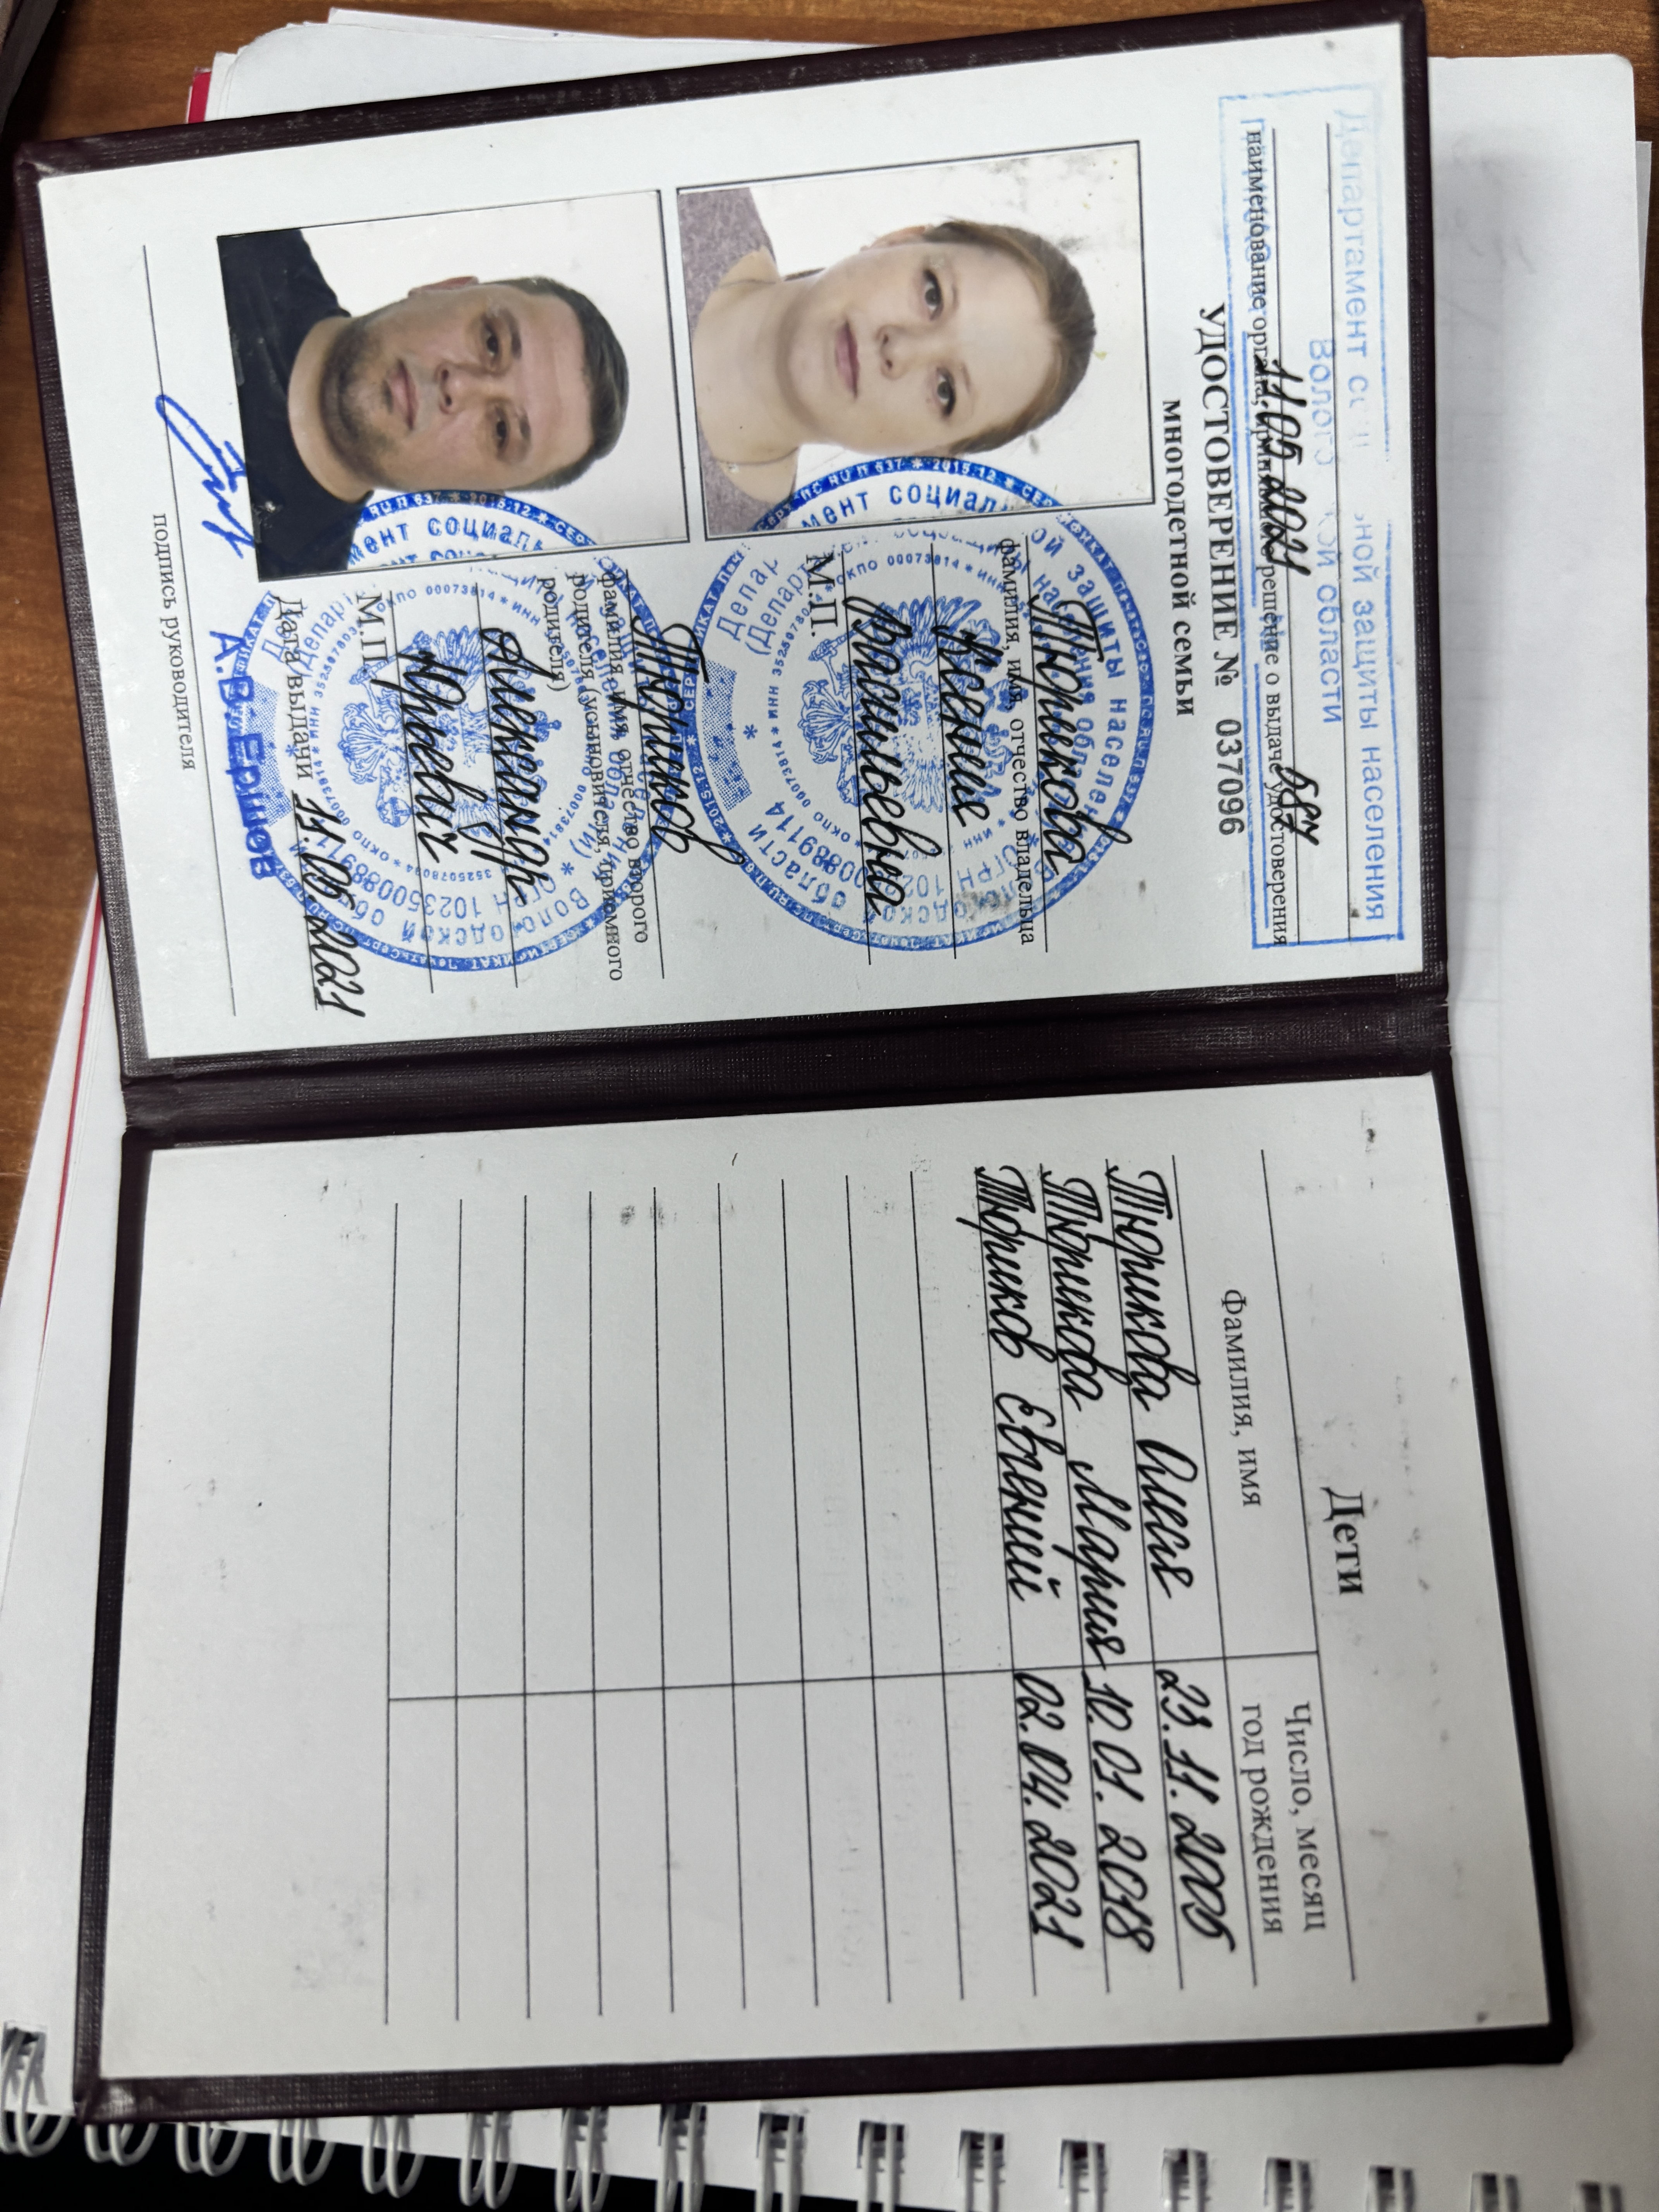 Департамент социальной защиты населения
Вологодской области
11.05.2021 587
наименование органа, принявшего решение о выдаче удостоверения
УДОСТОВЕРЕНИЕ № 037096
многодетной семьи
Тюрикова
фамилия, имя, отчество владельца
Ксения
Васильевна
М.П.
Тюриков
фамилия, имя, отчество второго
родителя (усыновителя, приемного
родителя)
Александр
Юрьевич
М.П.
Дата выдачи 11.05.2021
А.В. Ершов
подпись руководителя
Дети
Фамилия, имя
Число, месяц
год рождения
Тюрикова 23.11.2005
Тюрикова Мария 10.01.2018
Тюриков Евгений 02.04.2021